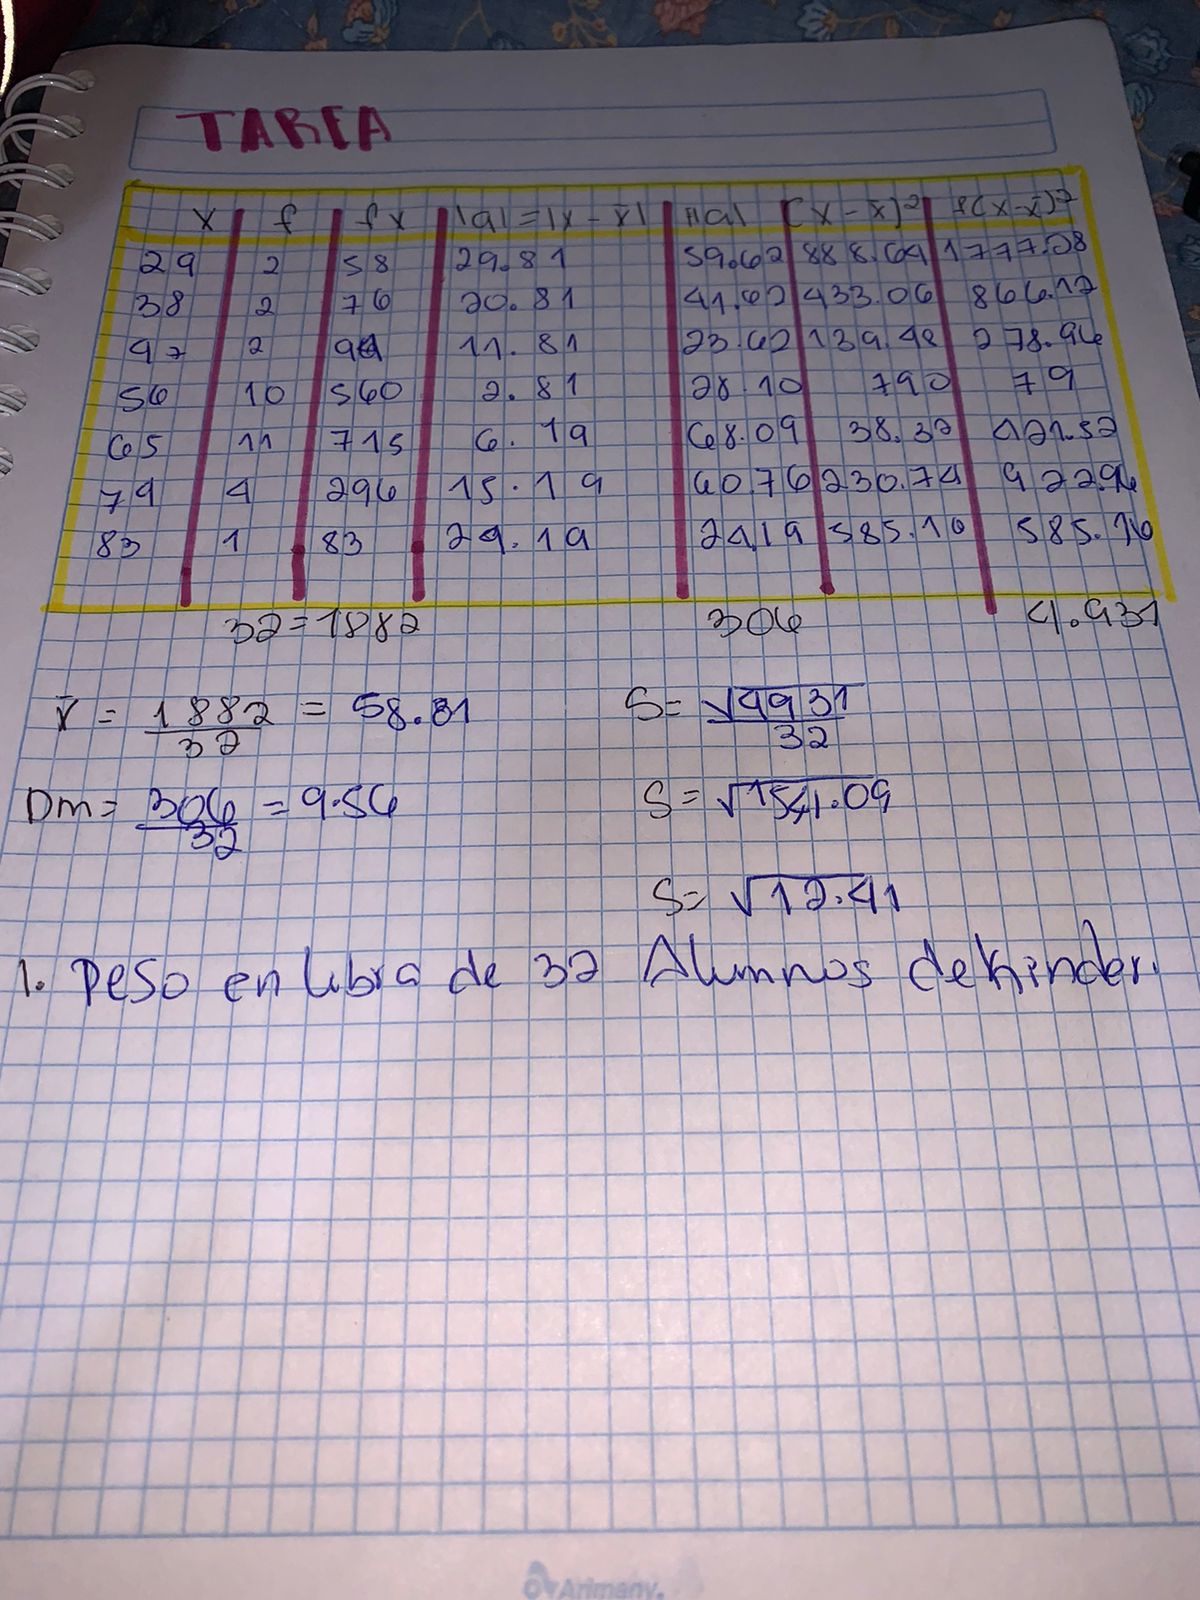 TAREA
x f fx |a|=|x-x̄| f|a| (x-x̄)² f(x-x̄)²
29 2 58 29.81 59.62 888.64 1777.28
38 2 76 20.81 41.62 433.06 866.12
47 2 94 11.81 23.62 139.48 278.96
56 10 560 2.81 28.10 790 79
65 11 715 6.19 68.09 38.32 421.52
74 4 296 15.19 60.76 230.74 922.96
83 1 83 24.19 24.19 585.16 585.16
32=1882 306 4.931
x̄ = 1882/32 = 58.81
S= √4931/32
Dm= 306/32 = 9.56
S= √1541.09
S= √12.41
1. Peso en libra de 32 Alumnos de Kinder.
Arimany.